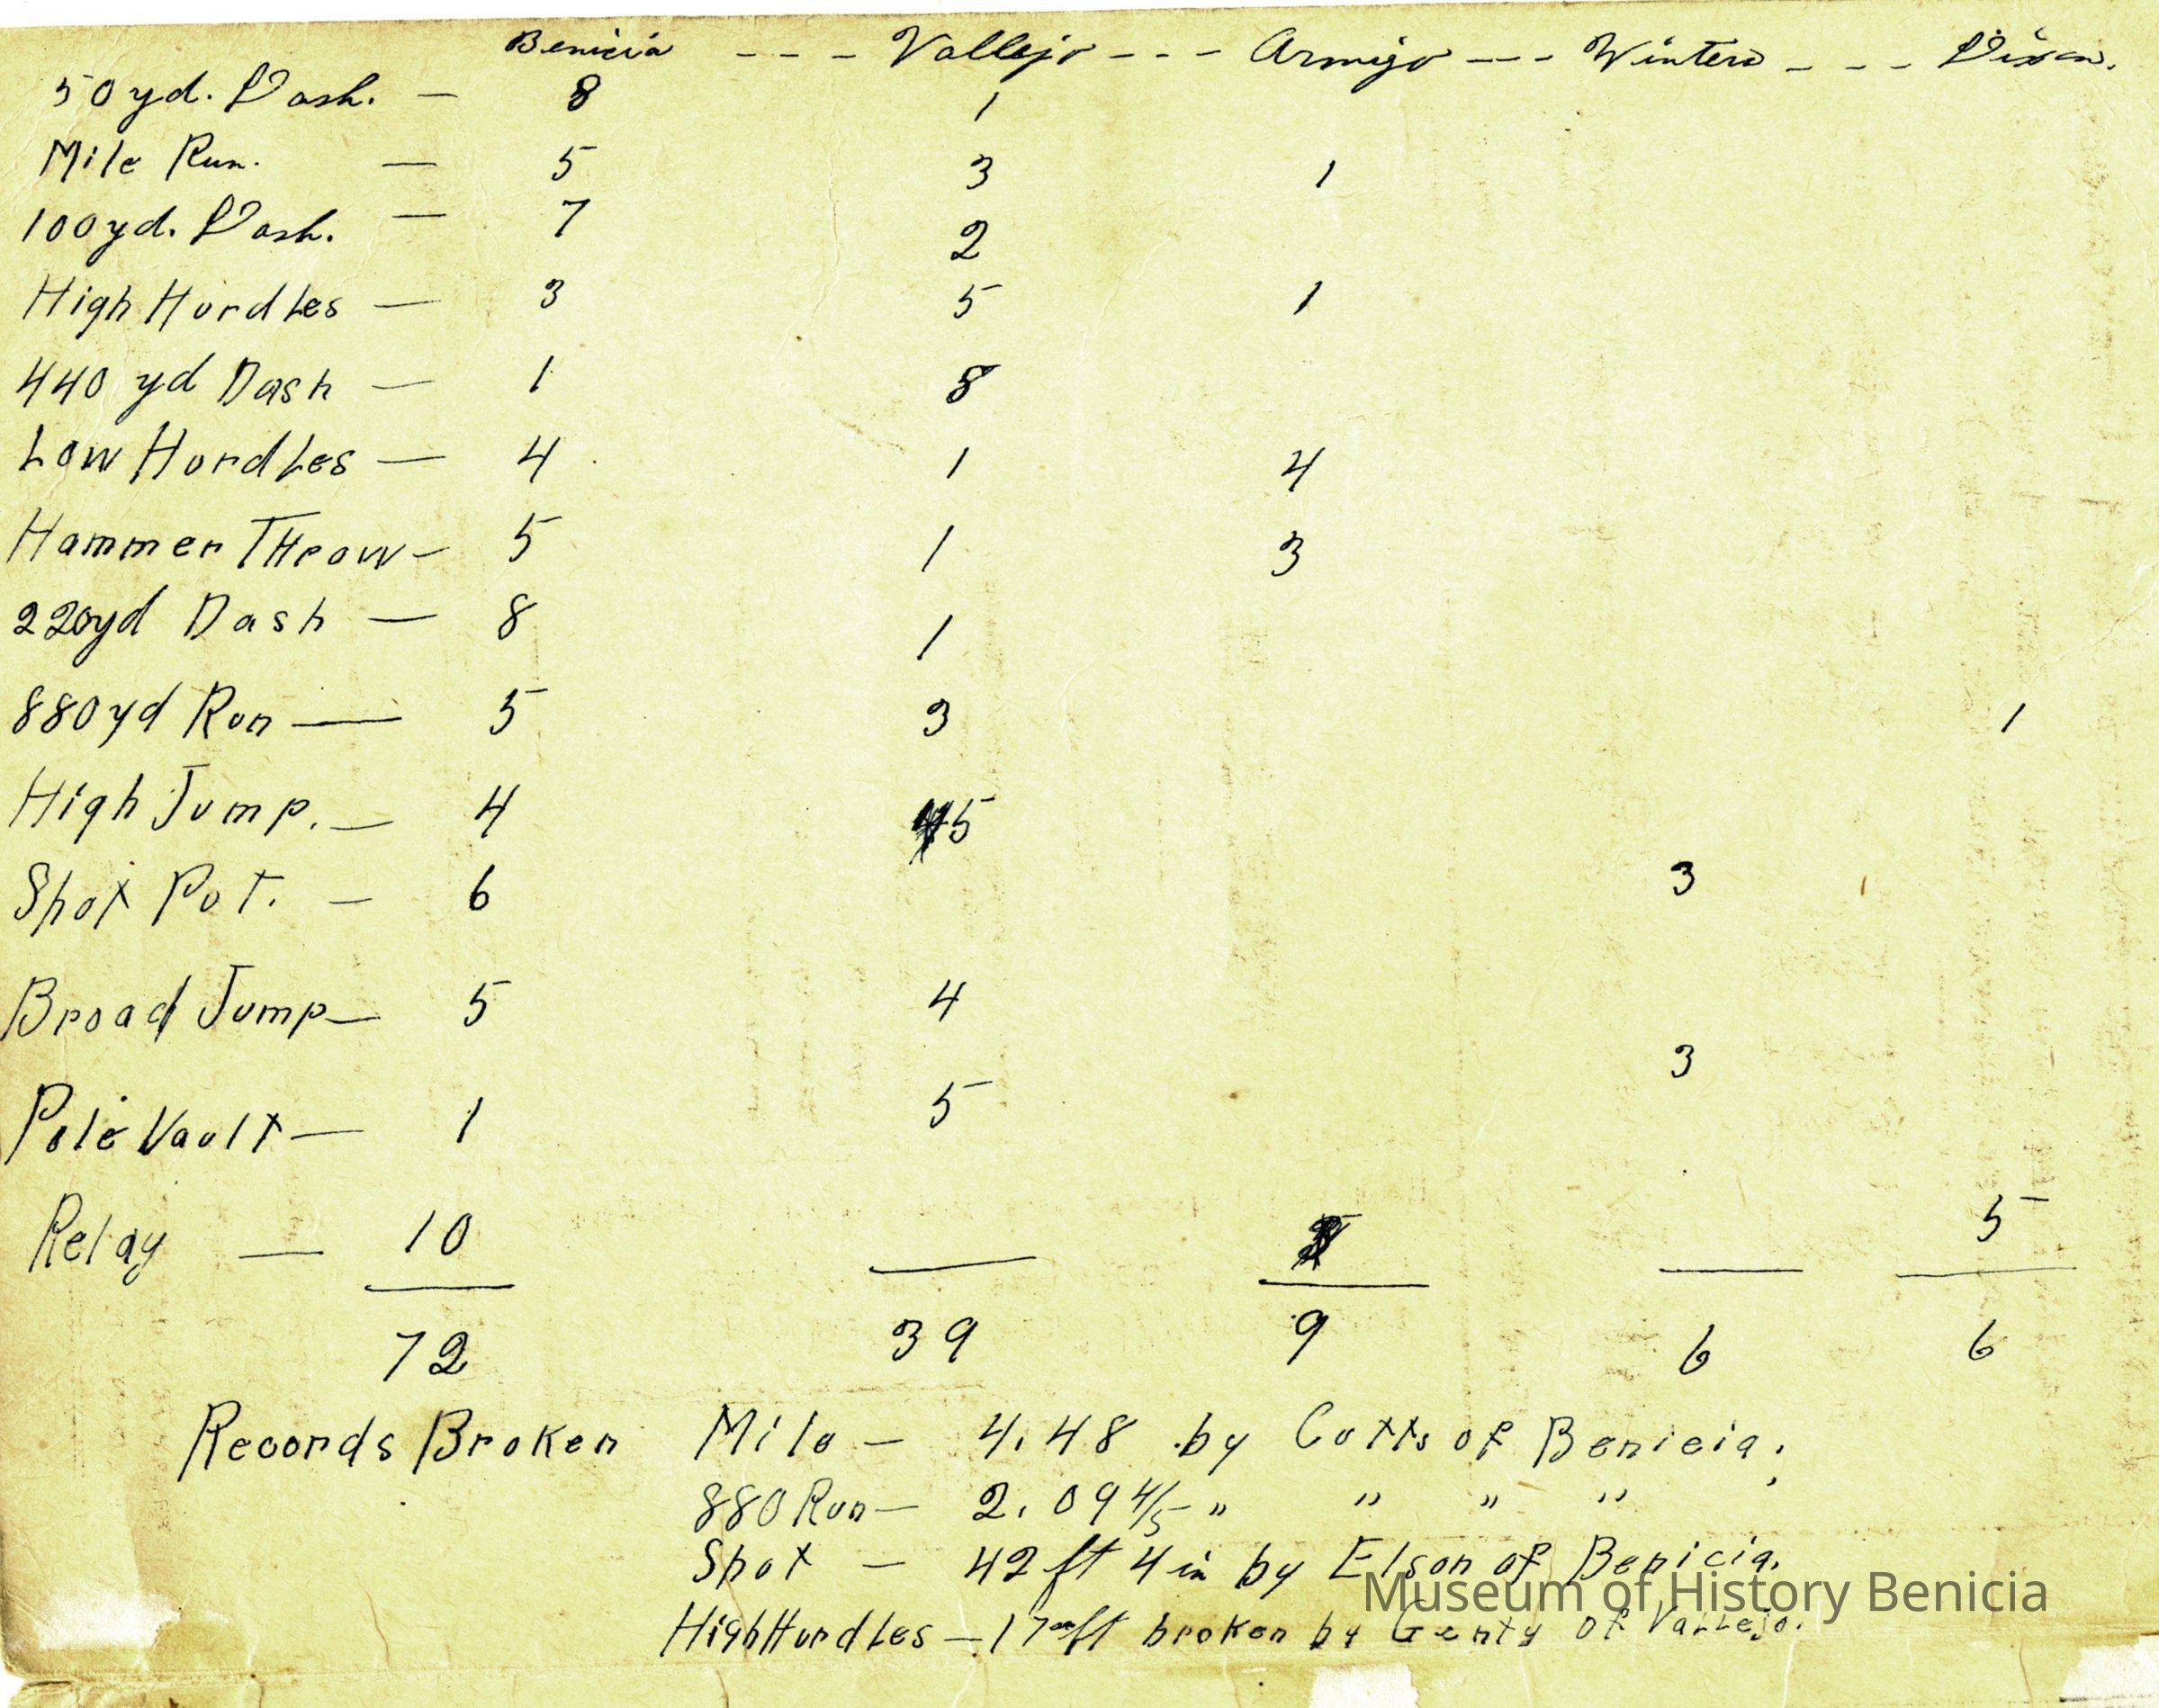 Benicia - - - Vallejo - - - Armijo - - - Winters - - - Dixon.
50 yd. Dash. — 8 1
Mile Run. — 5 3 1
100 yd. Dash. — 7 2
High Hurdles — 3 5 1
440 yd Dash — 1 8
Low Hurdles — 4 1 4
Hammer THrow — 5 1 3
220yd Dash — 8 1
880yd Run — 5 3 1
High Jump. — 4 5
Shot Put. — 6 3
Broad Jump — 5 4
Pole Vault — 1 5 3
Relay — 10 5
72 39 9 6 6
Records Broken Mile — 4.48 by Cotts of Benicia.
880 Run — 2.09 4/5 " " " "
Shot — 42 ft 4 in by Elson of Benicia.
High Hurdles — 17 ft broken by Genty of Vallejo.
Museum of History Benicia